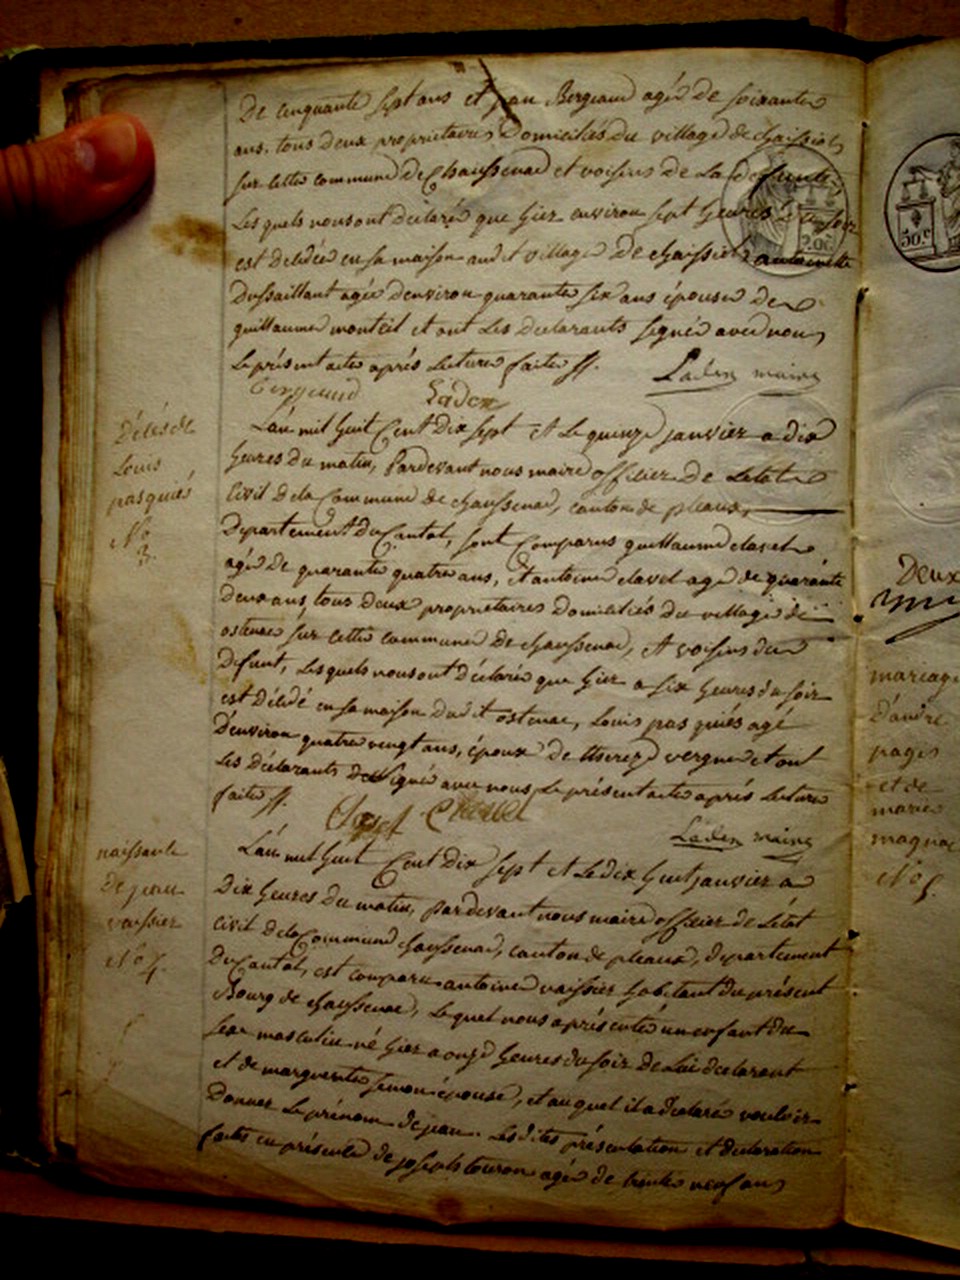 De cinquante sept ans et jean Bergeaud agé de soixante
ans, tous deux proprietaires Domiciliés du village de chaissiol
sur cette commune de Chaussenac et voisins de La defunte
Les quels nous ont déclaré que hier environ sept heures
est decédée en sa maison audit village de chaissiol antoinette
Dussaillant agée d'environ quarante six ans épouse de
guillaume monteil et ont Les declarants signé avec nous
Le présent acte aprés Lecture faite ff.
Laden maire
Bergeaud Laden
Décès de
Louis
pasquiés
No
3.
L'an mil huit Cent Dix sept et Le quinze janvier a dix
heures du matin, Pardevant nous maire officier De Letat
Civil de la Commune de chaussenac, canton de pleaux,
Departement Du Cantal, sont Comparus guillaume clavel
agé de quarante quatre ans, et antoine clavel agé de quarante
Deux ans, tous deux proprietaires Domiciliés du village de
ostenac sur cette commune de chaussenac, et voisins du
Defunt, Lesquels nous ont déclaré que hier a six heures du soir
est décédé en sa maison dudit ostenac, Louis pasquiés agé
D'environ quatre vingt ans, époux de vergne et ont
Les déclarants signé avec nous Le présent acte aprés Lecture
faite ff.
Clavel
Laden maire
naissance
De jean
vaissier
No 4.
L'an mil huit Cent Dix sept et Le dix huit janvier a
Dix heures du matin, Pardevant nous maire officier de L'état
civil de la Commune chaussenac, canton de pleaux, département
Du Cantal, est comparu antoine vaissier habitant du présent
Bourg de chaussenac, Lequel nous a présenté un enfant du
sexe masculin né hier a onze heures du soir de Lui declarant
et de marguerite simon épouse, et auquel il a declaré vouloir
Donner Le prénom de jean. Les dites présentation et declaration
faites en présence de joseph touron agé de trente neuf ans
50.c
Deux
mariage
D'andré
pages
et de
marie
magnac
No 5.